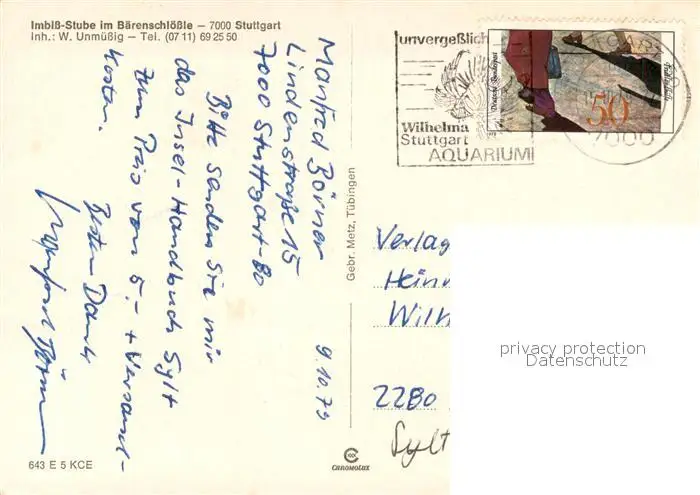 Imbiß-Stube im Bärenschlößle – 7000 Stuttgart
Inh.: W. Unmüßig – Tel. (07 11) 69 25 50
Manfred Börner
Lindenstraße 15
7000 Stuttgart-80
Bitte senden Sie mir
das Insel-Handbuch Sylt
zum Preis von 5.- + Versand-
kosten.
Besten Dank
Manfred Börner
9.10.79
643 E 5 KCE
Gebr. Metz, Tübingen
CHROMOLUX
unvergeßlich
Wilhelma
Stuttgart
AQUARIUM
Deutsche Bundespost
50
7000
Verlag
Hein
Wilh
2280
Sylt
privacy protection
Datenschutz